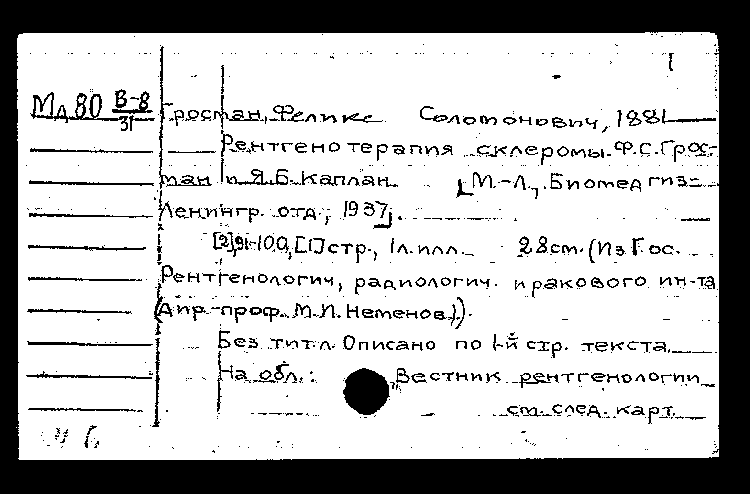 I
Мд 80 В-8/31
Гросман, Феликс Соломонович, 1881
Рентгенотерапия склеромы. Ф.С. Грос-
ман и Я.Б. Каплан. [М.-Л., Биомедгиз-
Ленингр. отд., 1937].
[2], 91-100, [1] стр., 1 л. илл. 28 см. (Из Гос.
Рентгенологич, радиологич. и ракового ин-та
(Дир.-проф. М.И. Неменов)).
Без тит. л. Описано по 1-й стр. текста.
На обл.: "Вестник рентгенологии
см. след. карт.